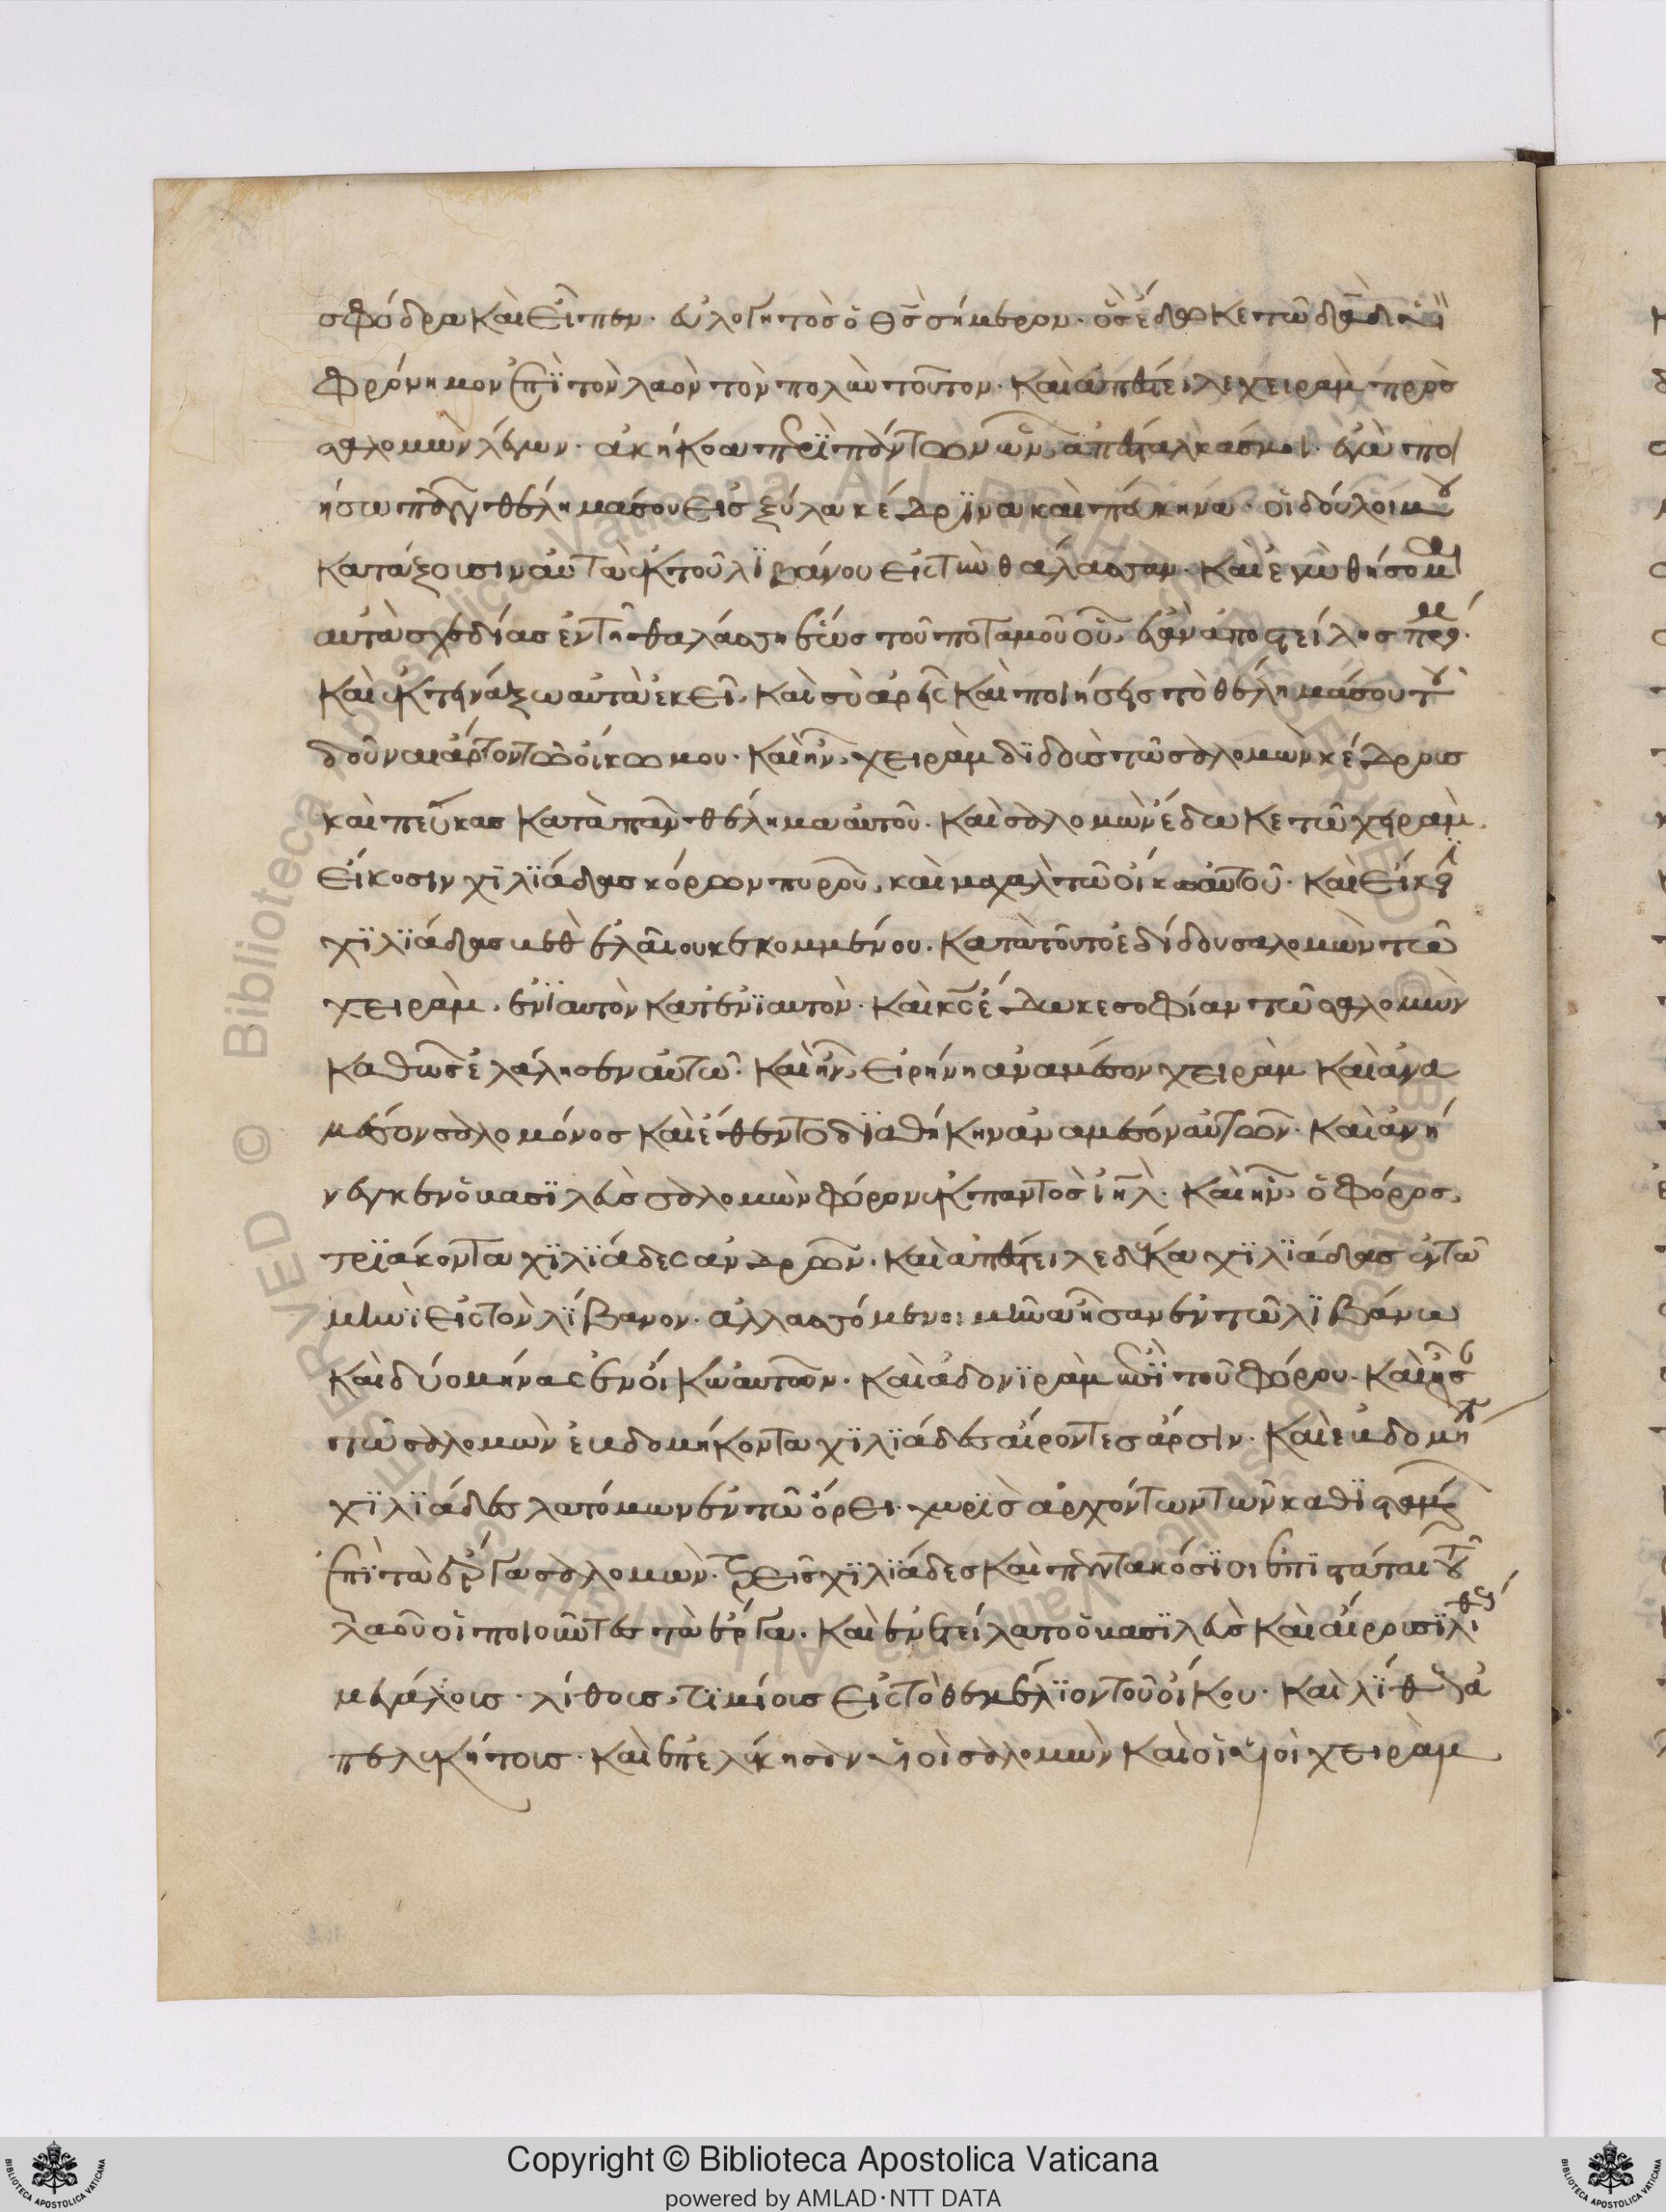 σφόδρα καὶ εἶπεν· εὐλογητὸς ὁ θς̅ σήμερον· ὃς ἔδωκε τῶ δα̅δ υἱὸν
φρόνιμον ἐπῒ τὸν λαὸν τὸν πολὺν τοῦτον. καὶ ἀπέστειλε χειρὰμ πρὸς
σαλομὼν λέγων· ἀκήκοα περῒ πάντων ὧν ἀπέσταλκας μοι· ἐγὼ ποι
ήσω πᾶν θέλημά σου εἰς ξύλα κέδρϊνα καὶ πεύκηνα· οἱ δοῦλοί μου
κατάξουσιν αὐτὰ ἐκ τοῦ λϊβάνου εἰς τὴν θάλασσαν· καὶ ἐγὼ θήσομαι
αὐτὰ σχεδίας ἐν τῆ θαλάσση ἕως τοῦ ποταμοῦ οὗ ἐὰν ἀποστείλης πρός με·
καὶ ἐκτηνάξω αὐτὰ ἐκεῖ, καὶ σὺ ἀρεῖς καὶ ποιήσεις τὸ θέλημά σου τοῦ
δοῦναι ἄρτον τῶ οἴκω μου· καὶ ἦν χειρὰμ δϊδοὺς τῶ σολομὼν κέδρους
καὶ πεύκας κατὰ πᾶν θέλημα αὐτοῦ· καὶ σολομὼν ἔδωκε τῶ χηρὰμ
εἴκοσιν χϊλϊάδας κόρων πυροῦ, καὶ μαχαλ τῶ οἴκω αὐτοῦ· καὶ εἴκοσι
χϊλϊάδας βεθ ἐλαίου κεκομμένου. κατὰ τοῦτο ἐδίδου σαλομὼν τῶ
χειρὰμ, ἐνϊαυτὸν κατ' ἐνϊαυτὸν· καὶ κς̅ ἔδωκε σοφίαν τῶ σαλομὼν
καθὼς ἐλάλησεν αὐτῶ· καὶ ἦν εἰρήνη ἀναμέσον χειρὰμ καὶ ἀνα
μέσον σολομόνος καὶ ἔθεντο δϊαθήκην ἀναμέσον αὐτῶν· καὶ ἀνή
νεγκεν ὁ βασϊλεὺς σολομὼν φόρον ἐκ παντὸς ιη̅λ· καὶ ἦν ὁ φόρος,
τρϊάκοντα χϊλϊάδες ἀνδρῶν· καὶ ἀπέστειλε δέκα χϊλϊάδας ἐν τῶ
μηνῒ εἰς τὸν λίβανον· ἀλλασσόμενοι μῆνα ἦσαν ἐν τῶ λϊβάνω
καὶ δύο μῆνας ἐν οἴκω αὐτῶν· καὶ ἀδονϊρὰμ ἐπῒ τοῦ φόρου. καὶ ἦσαν
τῶ σολομὼν ἑβδομήκοντα χϊλϊάδες αἴροντες ἄρσιν· καὶ ἑβδομήκοντα
χϊλϊάδες λατόμων ἐν τῶ ὄρει· χωρϊς ἀρχόντων τῶν καθϊσταμένων
ἐπῒ τὰ ἔργα σολομὼν· τρεῖς χϊλϊάδες καὶ πεντακόσϊοι ἐπϊστάται τοῦ
λαοῦ οἱ ποιοῦντες τὰ ἔργα· καὶ ἐνετείλατο ὁ βασϊλεὺς καὶ αἴρουσϊ λίθους
μεγάλοις· λίθοις τϊμίοις εἰς τὸ θεμέλϊον τοῦ οἴκου· καὶ λίθους ἀ
πελεκήτοις· καὶ ἐπελέκησαν υἱοὶ σολομὼν καὶ οἱ υἱοὶ χειρὰμ